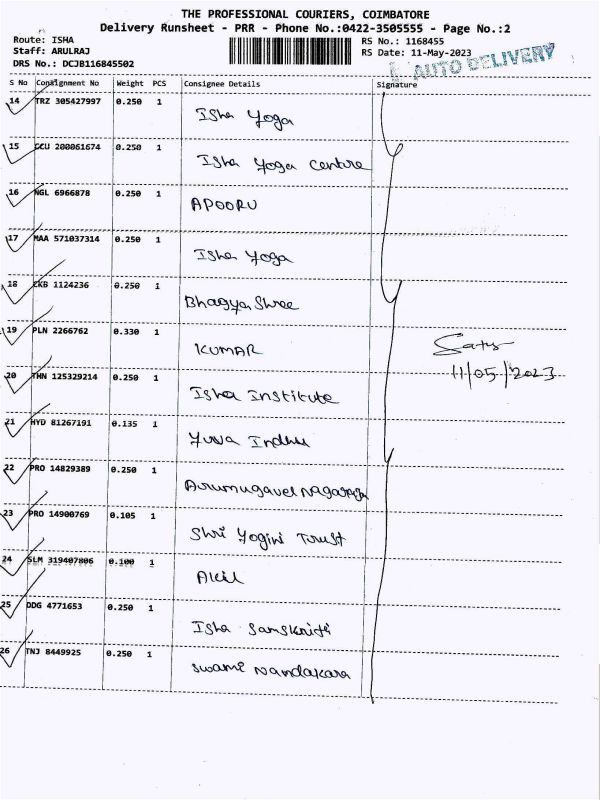 THE PROFESSIONAL COURIERS, COIMBATORE
Delivery Runsheet - PRR - Phone No.:0422-3505555 - Page No.:2
Route: ISHA
Staff: ARULRAJ
DRS No.: DCJB116845502
RS No.: 1168455
RS Date: 11-May-2023
AUTO DELIVERY
S No Consignment No Weight PCS Consignee Details Signature
14 TRZ 305427997 0.250 1 Isha Yoga
15 CCU 200061674 0.250 1 Isha Yoga Centure
16 NGL 6966878 0.250 1 APOORU
17 MAA 571037314 0.250 1 Isha Yoga
18 CKB 1124236 0.250 1 Bhagya Shree
19 PLN 2266762 0.330 1 KUMAR
20 THN 125329214 0.250 1 Isha Institute
21 HYD 81267191 0.135 1 Yuva Indhu
22 PRO 14829389 0.250 1 Arumugavel Nagaraja
23 PRO 14900769 0.105 1 Shri Yogini Trust
24 SLM 319407806 0.100 1 Akil
25 DDG 4771653 0.250 1 Isha Samskriti
26 TNJ 8449925 0.250 1 Swami Nandakara
11/05/2023